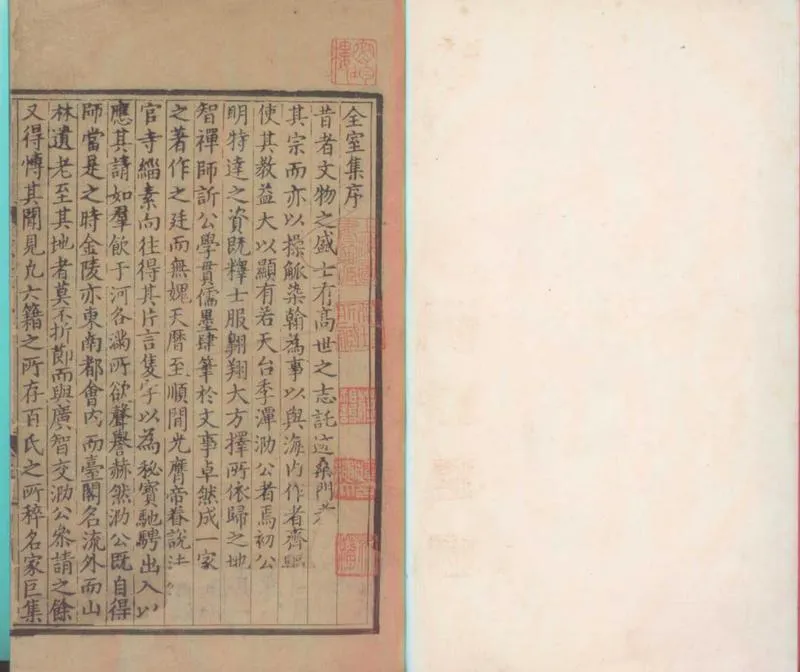 全室集序
昔者文物之盛士有高世之志託迹桑門
其宗而亦以操觚染翰為事以與海內作者齊
使其教益大以顯有若天台季潭泐公者焉初公
明特達之資既釋士服翱翔大方擇所依歸之地
智禪師訢公學貫儒墨肆筆於文事卓然成一家
之著作之廷而無媿天曆至順間光膺帝眷說法
官寺緇素向往得其片言隻字以為秘寶馳騁出入以
應其請如羣飲于河各滿所欲聲譽赫然泐公既自得
師當是之時金陵亦東南都會內而臺閣名流外而山
林遺老至其地者莫不折節而與廣智交泐公叅請之餘
又得慱其聞見九六籍之所存百氏之所稡名家巨集